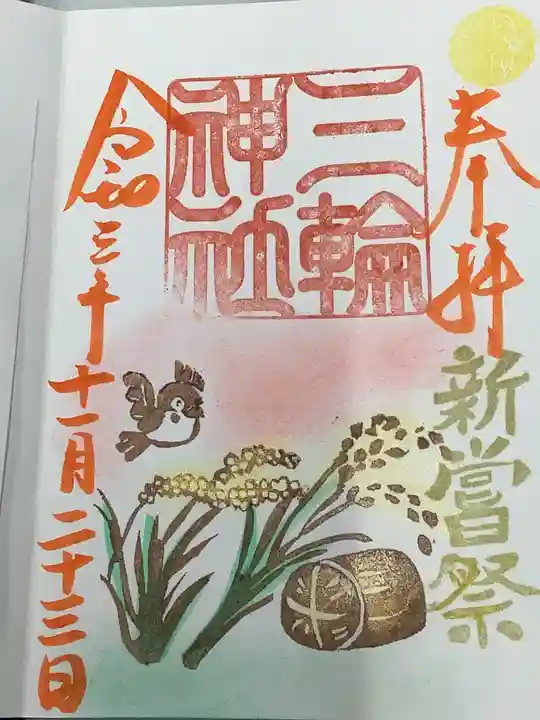 奉拝
新嘗祭
三輪
神社
令和三年十一月二十三日